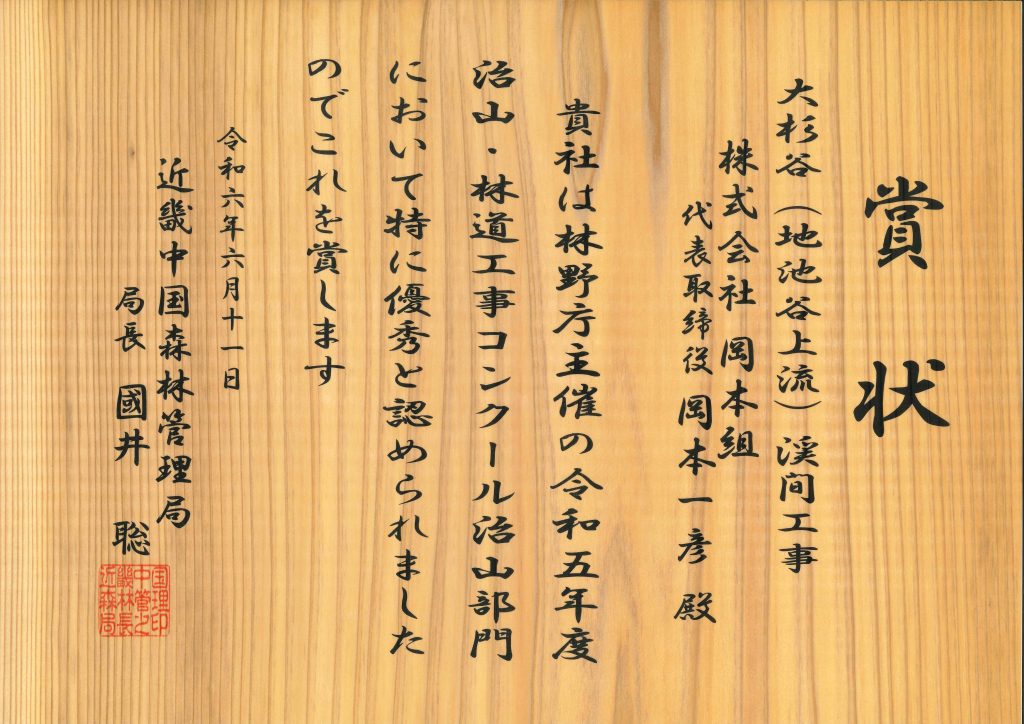 賞状
大杉谷（地池谷上流）渓間工事
株式会社 岡本組
代表取締役 岡本一彦 殿
貴社は林野庁主催の令和五年度
治山・林道工事コンクール治山部門
において特に優秀と認められました
のでこれを賞します
令和六年六月十一日
近畿中国森林管理局
局長 國井 聡
国理印
中管之
畿林長
近森局